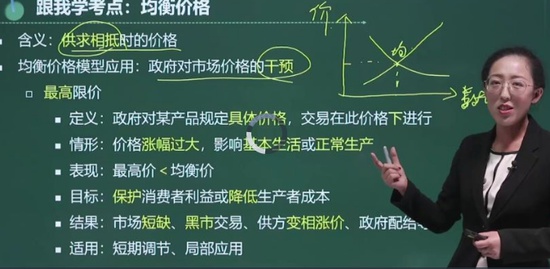 跟我学考点：均衡价格
价
含义：供求相抵时的价格
均
均衡价格模型应用：政府对市场价格的干预
最高限价
定义：政府对某产品规定具体价格，交易在此价格下进行
情形：价格涨幅过大，影响基本生活或正常生产
表现：最高价＜均衡价
目标：保护消费者利益或降低生产者成本
结果：市场短缺、黑市交易、供方变相涨价、政府配给
适用：短期调节、局部应用